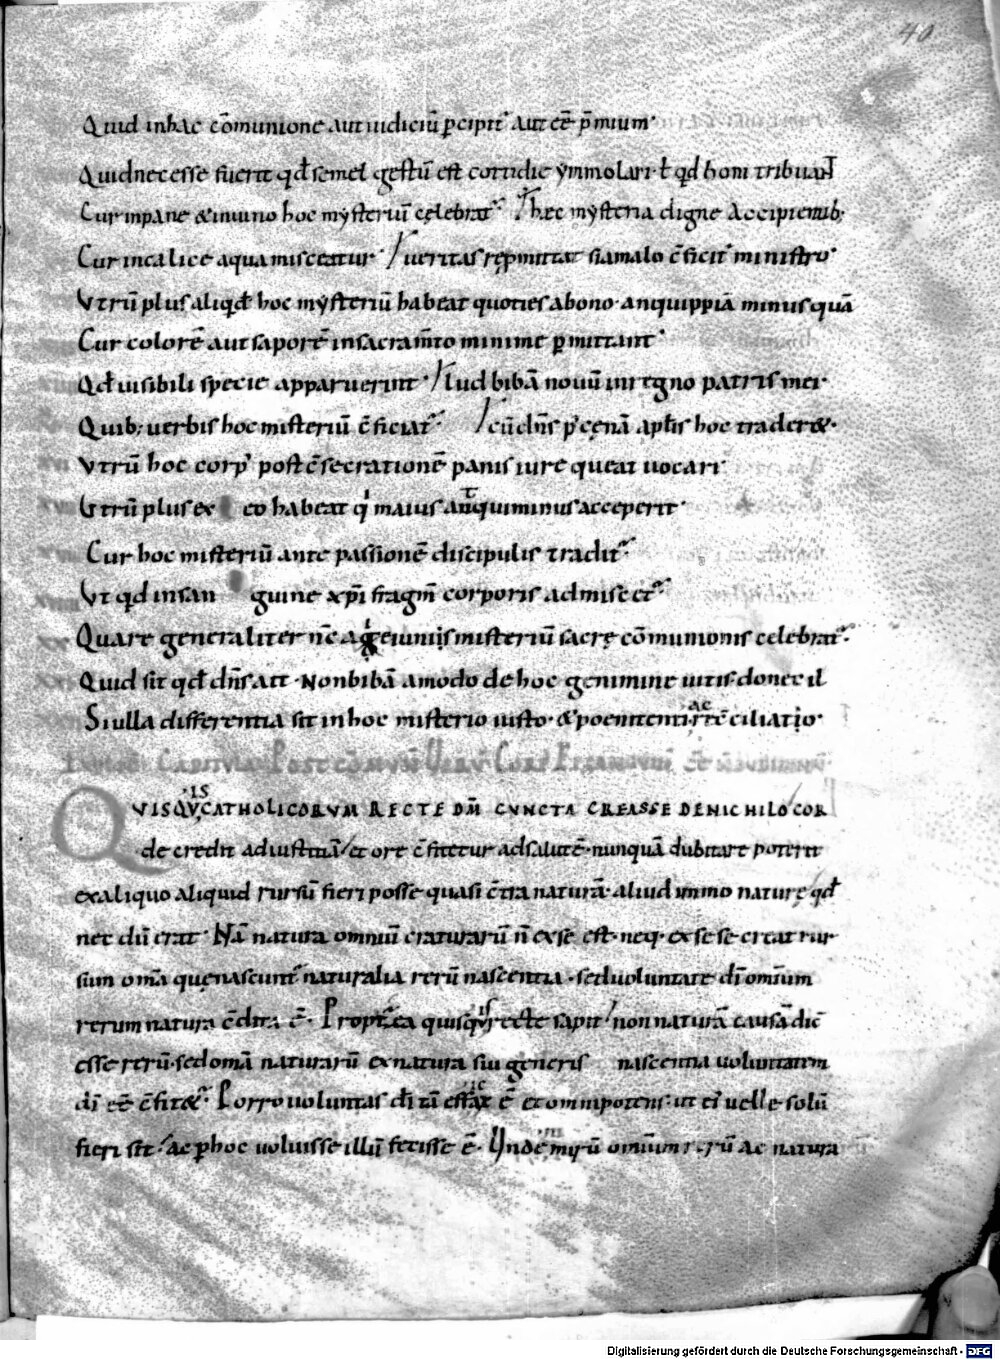 40
Quid in hac cōmunione aut iudiciū ꝑcipit᷑ aut cē p̄mium·
Quid necesse fuerit qđ semel gestū est cottidie ymmolari · ł qđ boni tribuat
Cur in pane & in uino hoc mysteriū celebrat᷑ / hec mysteria digne accipientib;
Cur in calice aqua misceatur· / ueritas repmittat si a malo c̄ficit᷑ ministro·
Vtrū plus aliqđ hoc mysteriū habeat quoties a bono · an quippiā minus quā
Cur colorē aut saporē in sacram̄to minime ꝑmittant·
Qđ uisibili specie apparuerint· / lud bibā nouū in regno patris mei·
Quib; uerbis hoc misteriū c̄ficiat᷑ / cū dn̄s p᷒ cenā apłis hoc trader&·
Vtrū hoc corp᷒ post c̄secrationē panis iure queat uocari·
Vtrū plus ex eo habeat qi maius an qui minus acceperit·
Cur hoc misteriū ante passionē discipulis tradit᷑
Vt qđ in san guine xp̄i fragm̄ corporis admisc&᷑
Quare generaliter n̄c a ieiuniis misteriū sacrę cōmunionis celebrat᷑·
Quid sit qđ dn̄s ait · Non bibā amodo de hoc genimine uitis donec il
Si ulla differentia sit in hoc misterio iusto · & poenitenti ac rec̄ciliatio·
QVISQVIS CATHOLICORVM RECTE DM̄ CVNCTA CREASSE DE NICHILO COR
de credit ad iustitiā / et ore c̄fitetur ad salutē · nunquā dubitare poterit
ex aliquo aliquid rursū fieri posse quasi c̄tra naturā · aliud immo naturę / qđ
nec dū erat· Nā natura omniū craturarū n̄ ex se est · neq; ex se se creat rur
sum om̄a que nascunt᷑ naturalia rerū nascentia · sed uoluntate dī omnium
rerum natura c̄dita ē · Propt̄ea quisquis recte sapit / non naturā causā dic̄
esse rerū · sed om̄a naturarū ex natura sui generis nascentia uoluntatem
dī eē c̄fit&᷑· Porro uoluntas dī tā efficax ē et omnipotens · ut ei᷒ uelle solū
fieri sit / ac ꝑ hoc uoluisse illū fecisse ē · Vnde omniū rerū ac natura
Digitalisierung gefördert durch die Deutsche Forschungsgemeinschaft - DFG